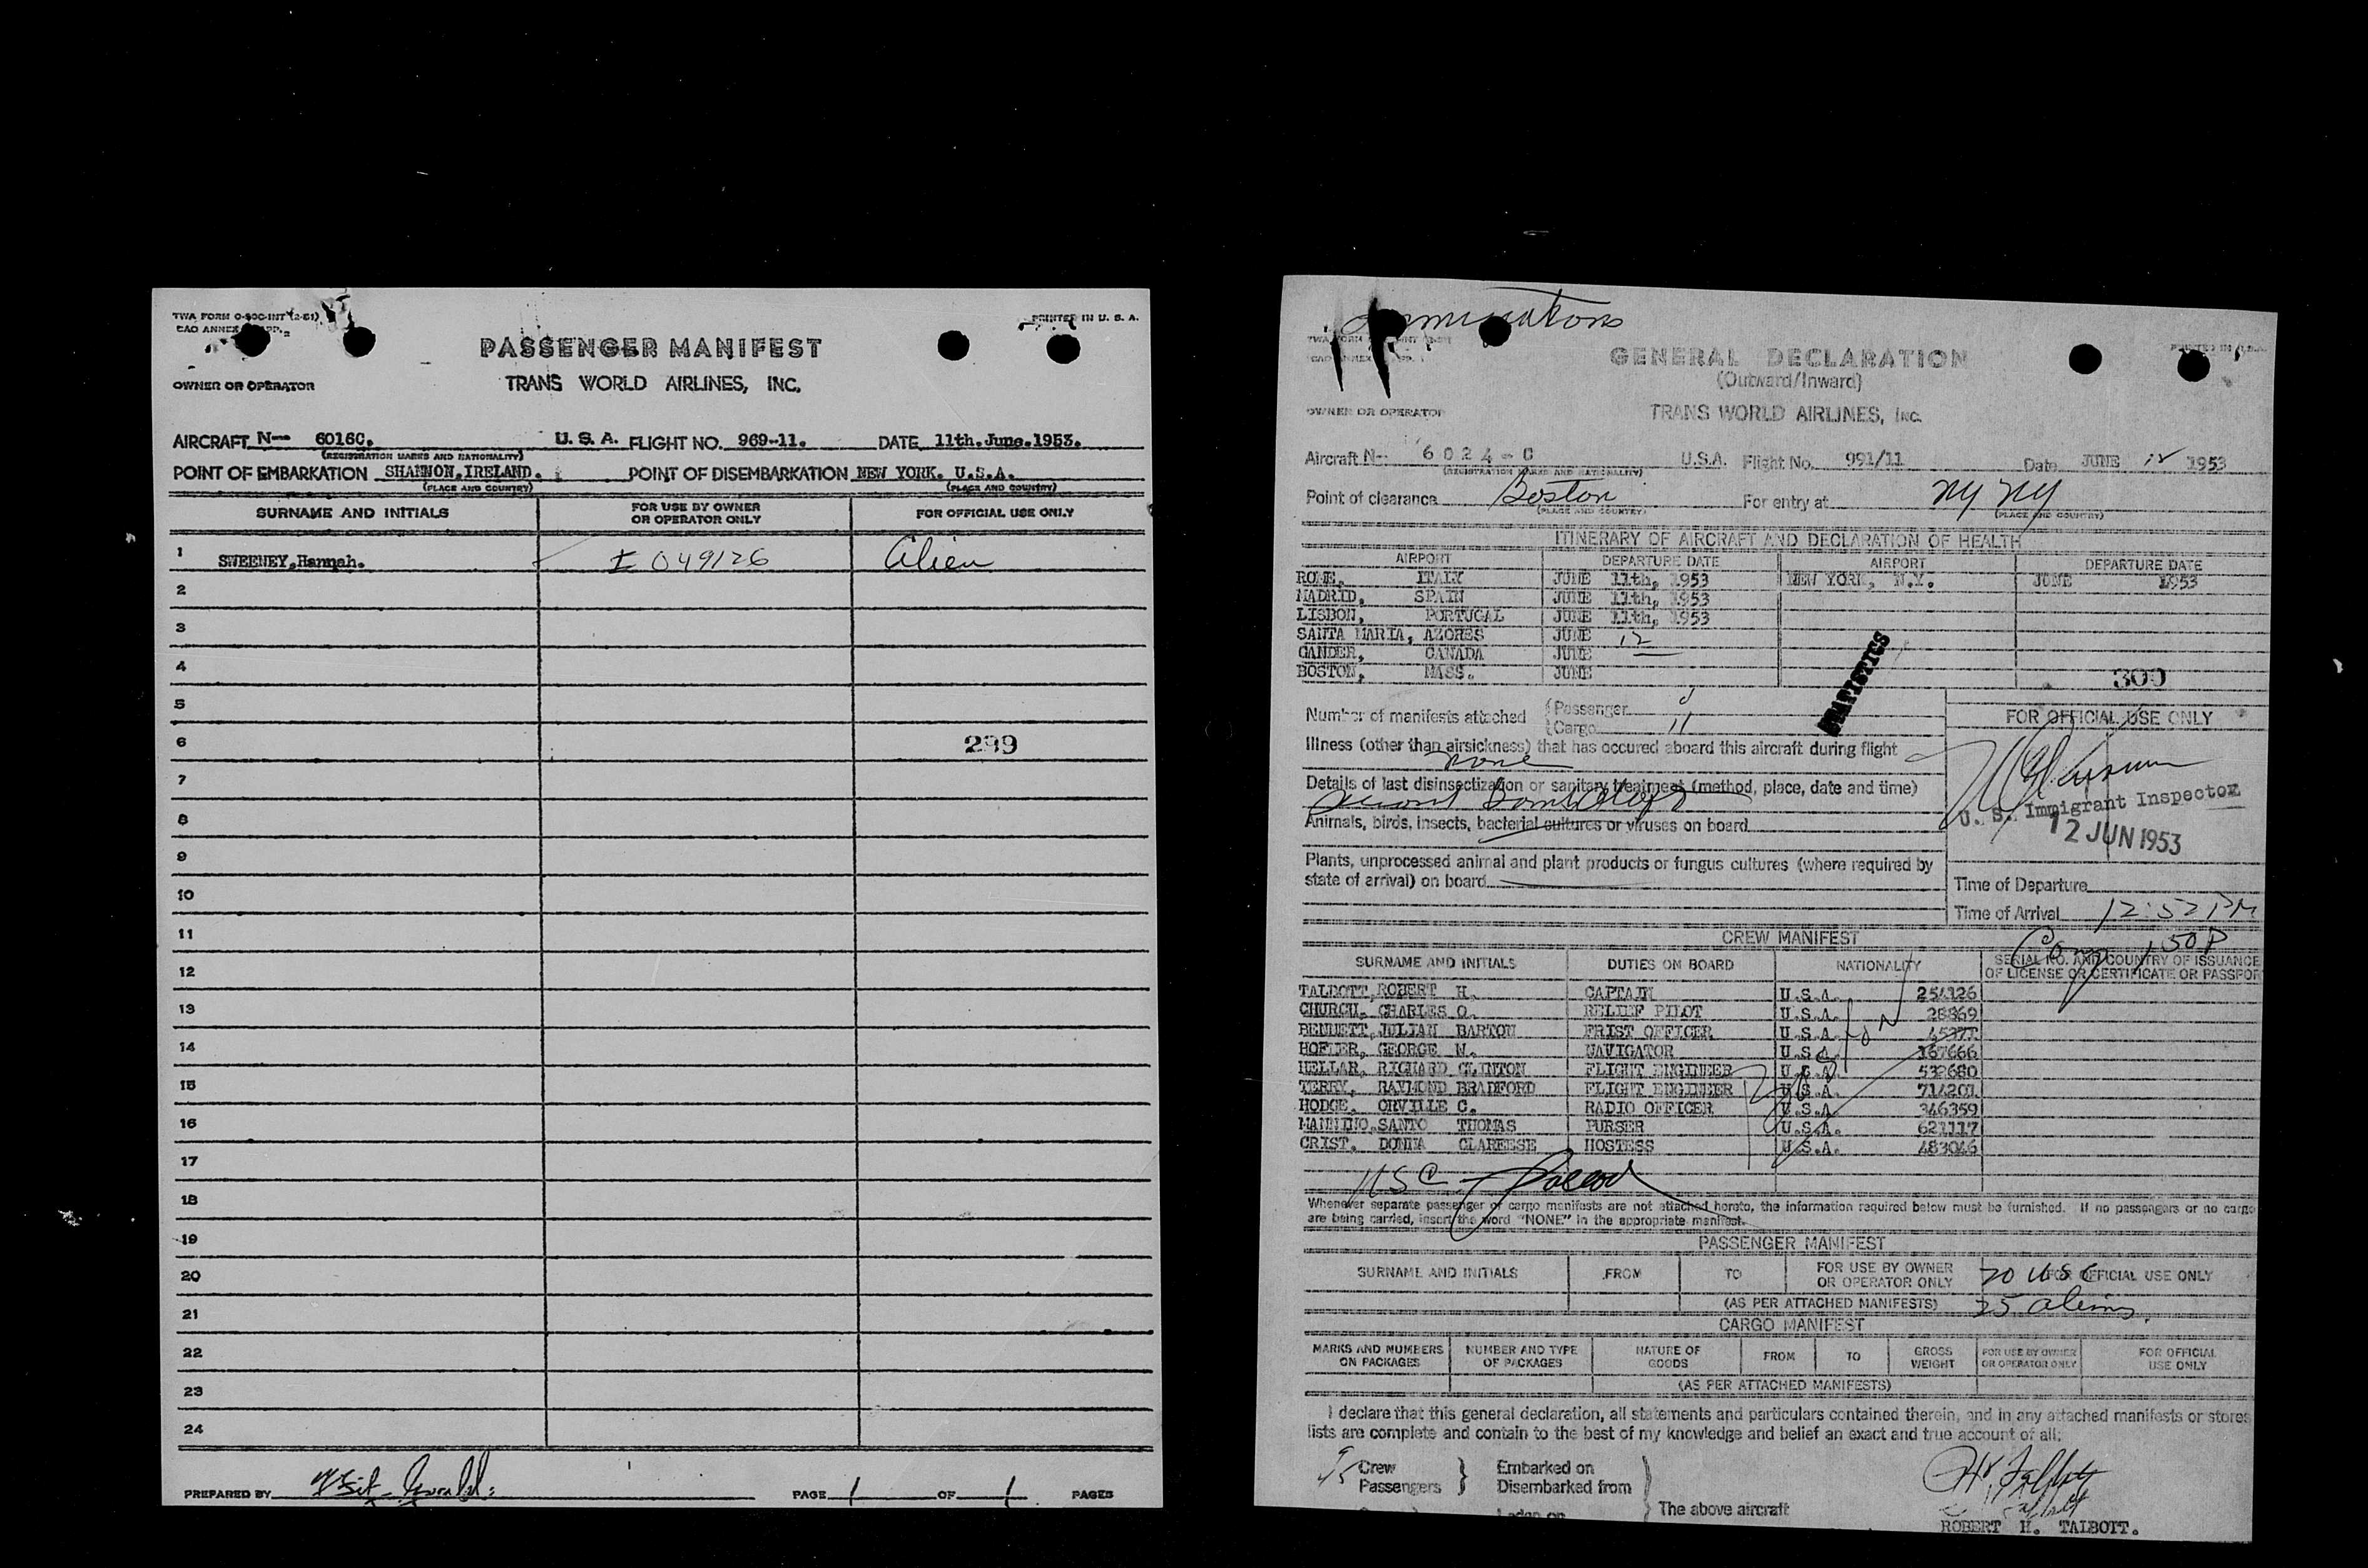 TWA FORM O-90C-INT (2-51)
CAO ANNEX
PRINTED IN U. S. A.
PASSENGER MANIFEST
OWNER OR OPERATOR
TRANS WORLD AIRLINES, INC.
AIRCRAFT N-- 6016C. U. S. A. FLIGHT NO. 969-11. DATE 11th.June.1953.
(REGISTRATION MARKS AND NATIONALITY)
POINT OF EMBARKATION SHANNON,IRELAND. POINT OF DISEMBARKATION NEW YORK. U.S.A.
(PLACE AND COUNTRY) (PLACE AND COUNTRY)
SURNAME AND INITIALS FOR USE BY OWNER OR OPERATOR ONLY FOR OFFICIAL USE ONLY
1 SWEENEY,Hannah. I 049126 Alien
2
3
4
5
6 299
7
8
9
10
11
12
13
14
15
16
17
18
19
20
21
22
23
24
PREPARED BY PAGE 1 OF 1 PAGES
GENERAL DECLARATION
(Outward/Inward)
OWNER OR OPERATOR
TRANS WORLD AIRLINES, INC.
Aircraft N-- 6024-C U.S.A. Flight No. 991/11 Date JUNE 12 1953
(REGISTRATION MARKS AND NATIONALITY)
Point of clearance Boston For entry at NY NY
(PLACE AND COUNTRY) (PLACE AND COUNTRY)
ITINERARY OF AIRCRAFT AND DECLARATION OF HEALTH
AIRPORT DEPARTURE DATE AIRPORT DEPARTURE DATE
ROME, ITALY JUNE 11th, 1953 NEW YORK, N.Y. JUNE 1953
MADRID, SPAIN JUNE 11th, 1953
LISBON, PORTUGAL JUNE 11th, 1953
SANTA MARIA, AZORES JUNE 12
GANDER, CANADA JUNE
BOSTON, MASS. JUNE
STATISTICS
300
Number of manifests attached
Passenger
Cargo 11
FOR OFFICIAL USE ONLY
Illness (other than airsickness) that has occured aboard this aircraft during flight
none
Details of last disinsectization or sanitary treatment (method, place, date and time)
Animals, birds, insects, bacterial cultures or viruses on board
U. S. Immigrant Inspector
12 JUN 1953
Plants, unprocessed animal and plant products or fungus cultures (where required by
state of arrival) on board
Time of Departure
Time of Arrival 12:52 PM
CREW MANIFEST
SURNAME AND INITIALS DUTIES ON BOARD NATIONALITY SERIAL NO. AND COUNTRY OF ISSUANCE OF LICENSE OR CERTIFICATE OR PASSPOR
TALBOTT, ROBERT H. CAPTAIN U.S.A. 254126
CHURCH, CHARLES O. RELIEF PILOT U.S.A. 28869
BENNETT, JULIAN BARTON FRIST OFFICER U.S.A. 45377
HOFLER, GEORGE W. NAVIGATOR U.S.A. 167666
HELLAR, RICHARD CLINTON FLIGHT ENGINEER U.S.A. 532680
TERRY, RAYMOND BRADFORD FLIGHT ENGINEER U.S.A. 714201
HODGE. ORVILLE C. RADIO OFFICER U.S.A. 346359
MANNINO,SANTO THOMAS PURSER U.S.A. 621117
CRIST. DONNA CLAREESE HOSTESS U.S.A. 483046
USC
Whenever separate passenger or cargo manifests are not attached hereto, the information required below must be furnished. If no passengers or no cargo
are being carried, insert the word "NONE" in the appropriate manifest.
PASSENGER MANIFEST
SURNAME AND INITIALS FROM TO FOR USE BY OWNER OR OPERATOR ONLY FOR OFFICIAL USE ONLY
20 USC
(AS PER ATTACHED MANIFESTS) 25 aliens
CARGO MANIFEST
MARKS AND NUMBERS ON PACKAGES NUMBER AND TYPE OF PACKAGES NATURE OF GOODS FROM TO GROSS WEIGHT FOR USE BY OWNER OR OPERATOR ONLY FOR OFFICIAL USE ONLY
(AS PER ATTACHED MANIFESTS)
I declare that this general declaration, all statements and particulars contained therein, and in any attached manifests or stores
lists are complete and contain to the best of my knowledge and belief an exact and true account of all:
9 Crew Embarked on
45 Passengers Disembarked from
The above aircraft
ROBERT H. TALBOTT.